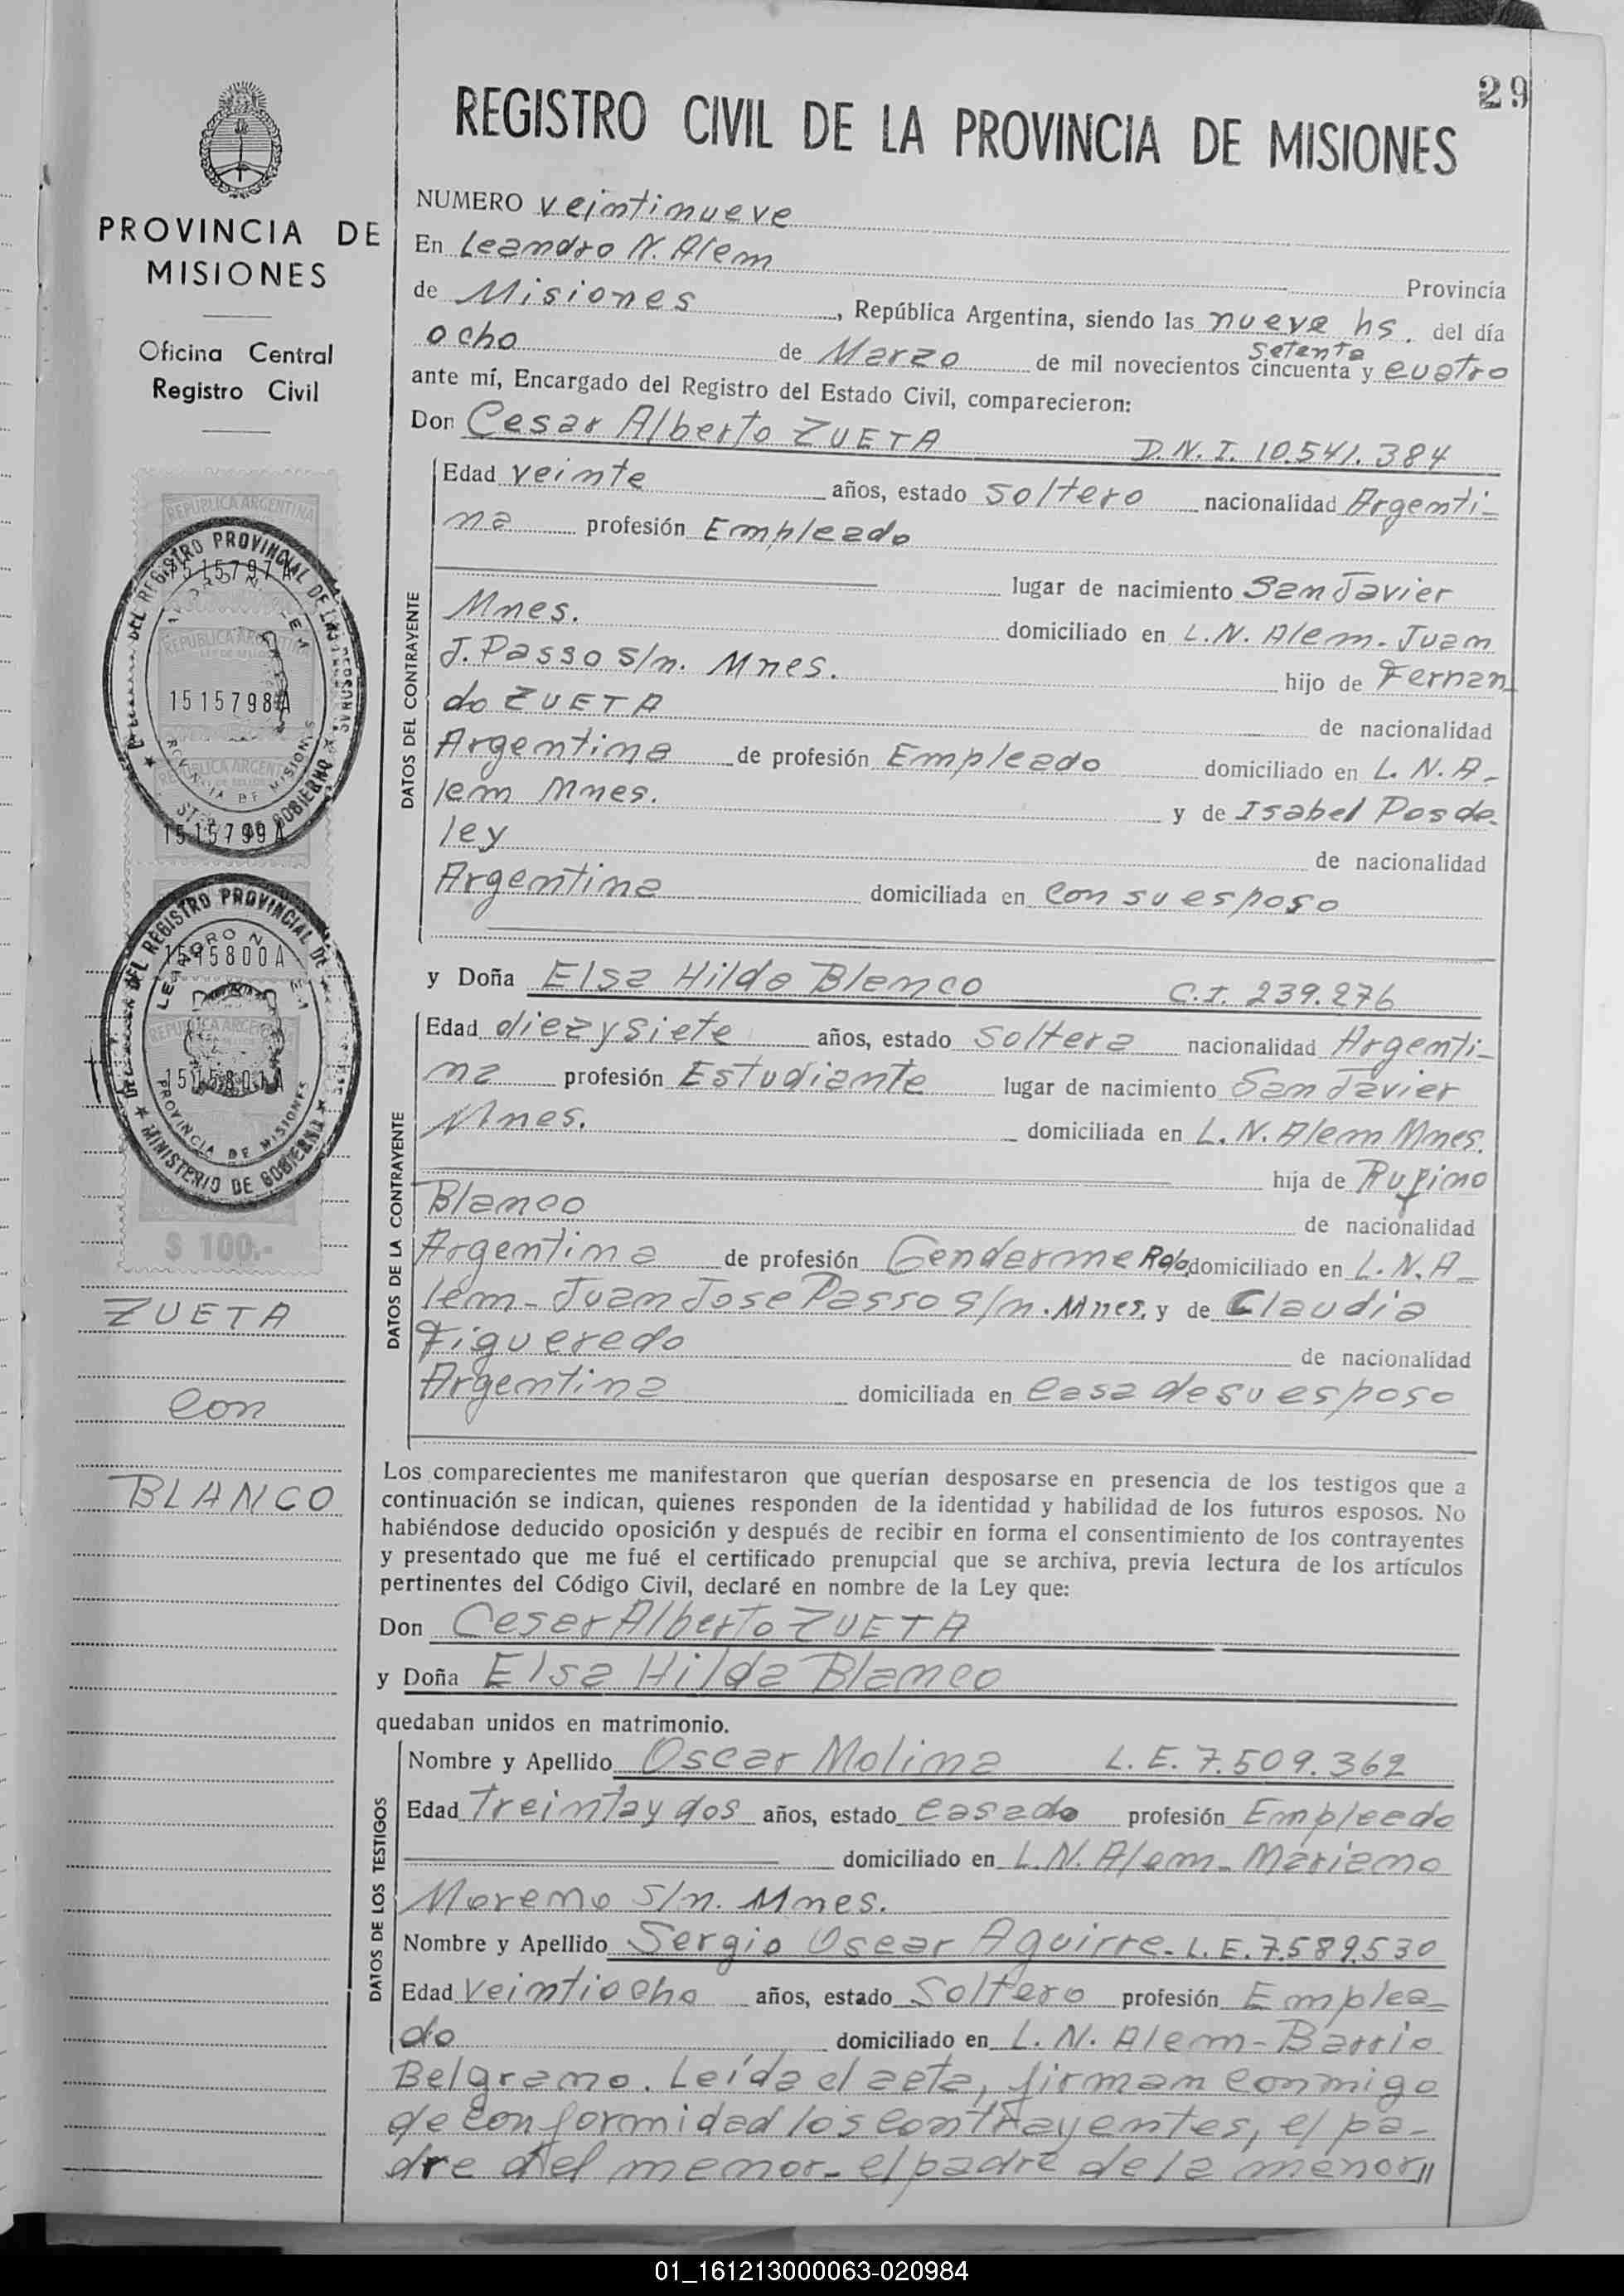 29
REGISTRO CIVIL DE LA PROVINCIA DE MISIONES
PROVINCIA DE
MISIONES
Oficina Central
Registro Civil
REPUBLICA ARGENTINA
1515797A
1515798A
1515799A
1515800A
1515801A
LEANDRO N. ALEM
PROVINCIA DE MISIONES
MINISTERIO DE GOBIERNO
$ 100.-
ZUETA
con
BLANCO
NUMERO veintinueve
En Leandro N. Alem Provincia
de Misiones, República Argentina, siendo las nueve hs. del día
ocho de Marzo de mil novecientos cincuenta setenta y cuatro
ante mí, Encargado del Registro del Estado Civil, comparecieron:
Don Cesar Alberto ZUETA D.N.I. 10.541.384
DATOS DEL CONTRAYENTE
Edad veinte años, estado soltero nacionalidad Argenti-
na profesión Empleado
lugar de nacimiento San Javier
Mnes. domiciliado en L.N. Alem - Juan
J. Passo s/n. Mnes. hijo de Fernan
do ZUETA de nacionalidad
Argentina de profesión Empleado domiciliado en L.N.A-
lem Mnes. y de Isabel Posde-
ley de nacionalidad
Argentina domiciliada en con su esposo
y Doña Elsa Hilda Blanco C.I. 239.276
DATOS DE LA CONTRAYENTE
Edad diezysiete años, estado Soltera nacionalidad Argenti-
na profesión Estudiante lugar de nacimiento San Javier
Mnes. domiciliada en L.N. Alem Mnes.
hija de Rufino
Blanco de nacionalidad
Argentina de profesión Gendarme Rdo domiciliado en L.N.A-
lem - Juan Jose Passo s/n. Mnes. y de Claudia
Figueredo de nacionalidad
Argentina domiciliada en casa de su esposo
Los comparecientes me manifestaron que querían desposarse en presencia de los testigos que a
continuación se indican, quienes responden de la identidad y habilidad de los futuros esposos. No
habiéndose deducido oposición y después de recibir en forma el consentimiento de los contrayentes
y presentado que me fué el certificado prenupcial que se archiva, previa lectura de los artículos
pertinentes del Código Civil, declaré en nombre de la Ley que:
Don Cesar Alberto ZUETA
y Doña Elsa Hilda Blanco
quedaban unidos en matrimonio.
DATOS DE LOS TESTIGOS
Nombre y Apellido Oscar Molina L.E. 7.509.362
Edad Treintay dos años, estado casado profesión Empleado
domiciliado en L.N. Alem - Mariano
Moreno s/n. Mnes.
Nombre y Apellido Sergio Oscar Aguirre - L.E. 7.589.530
Edad veintiocho años, estado Soltero profesión Emplea-
do domiciliado en L.N. Alem - Barrio
Belgrano. Leída el acta, firman conmigo
de conformidad los contrayentes, el pa-
dre del menor - el padre de la menor //
01_161213000063-020984